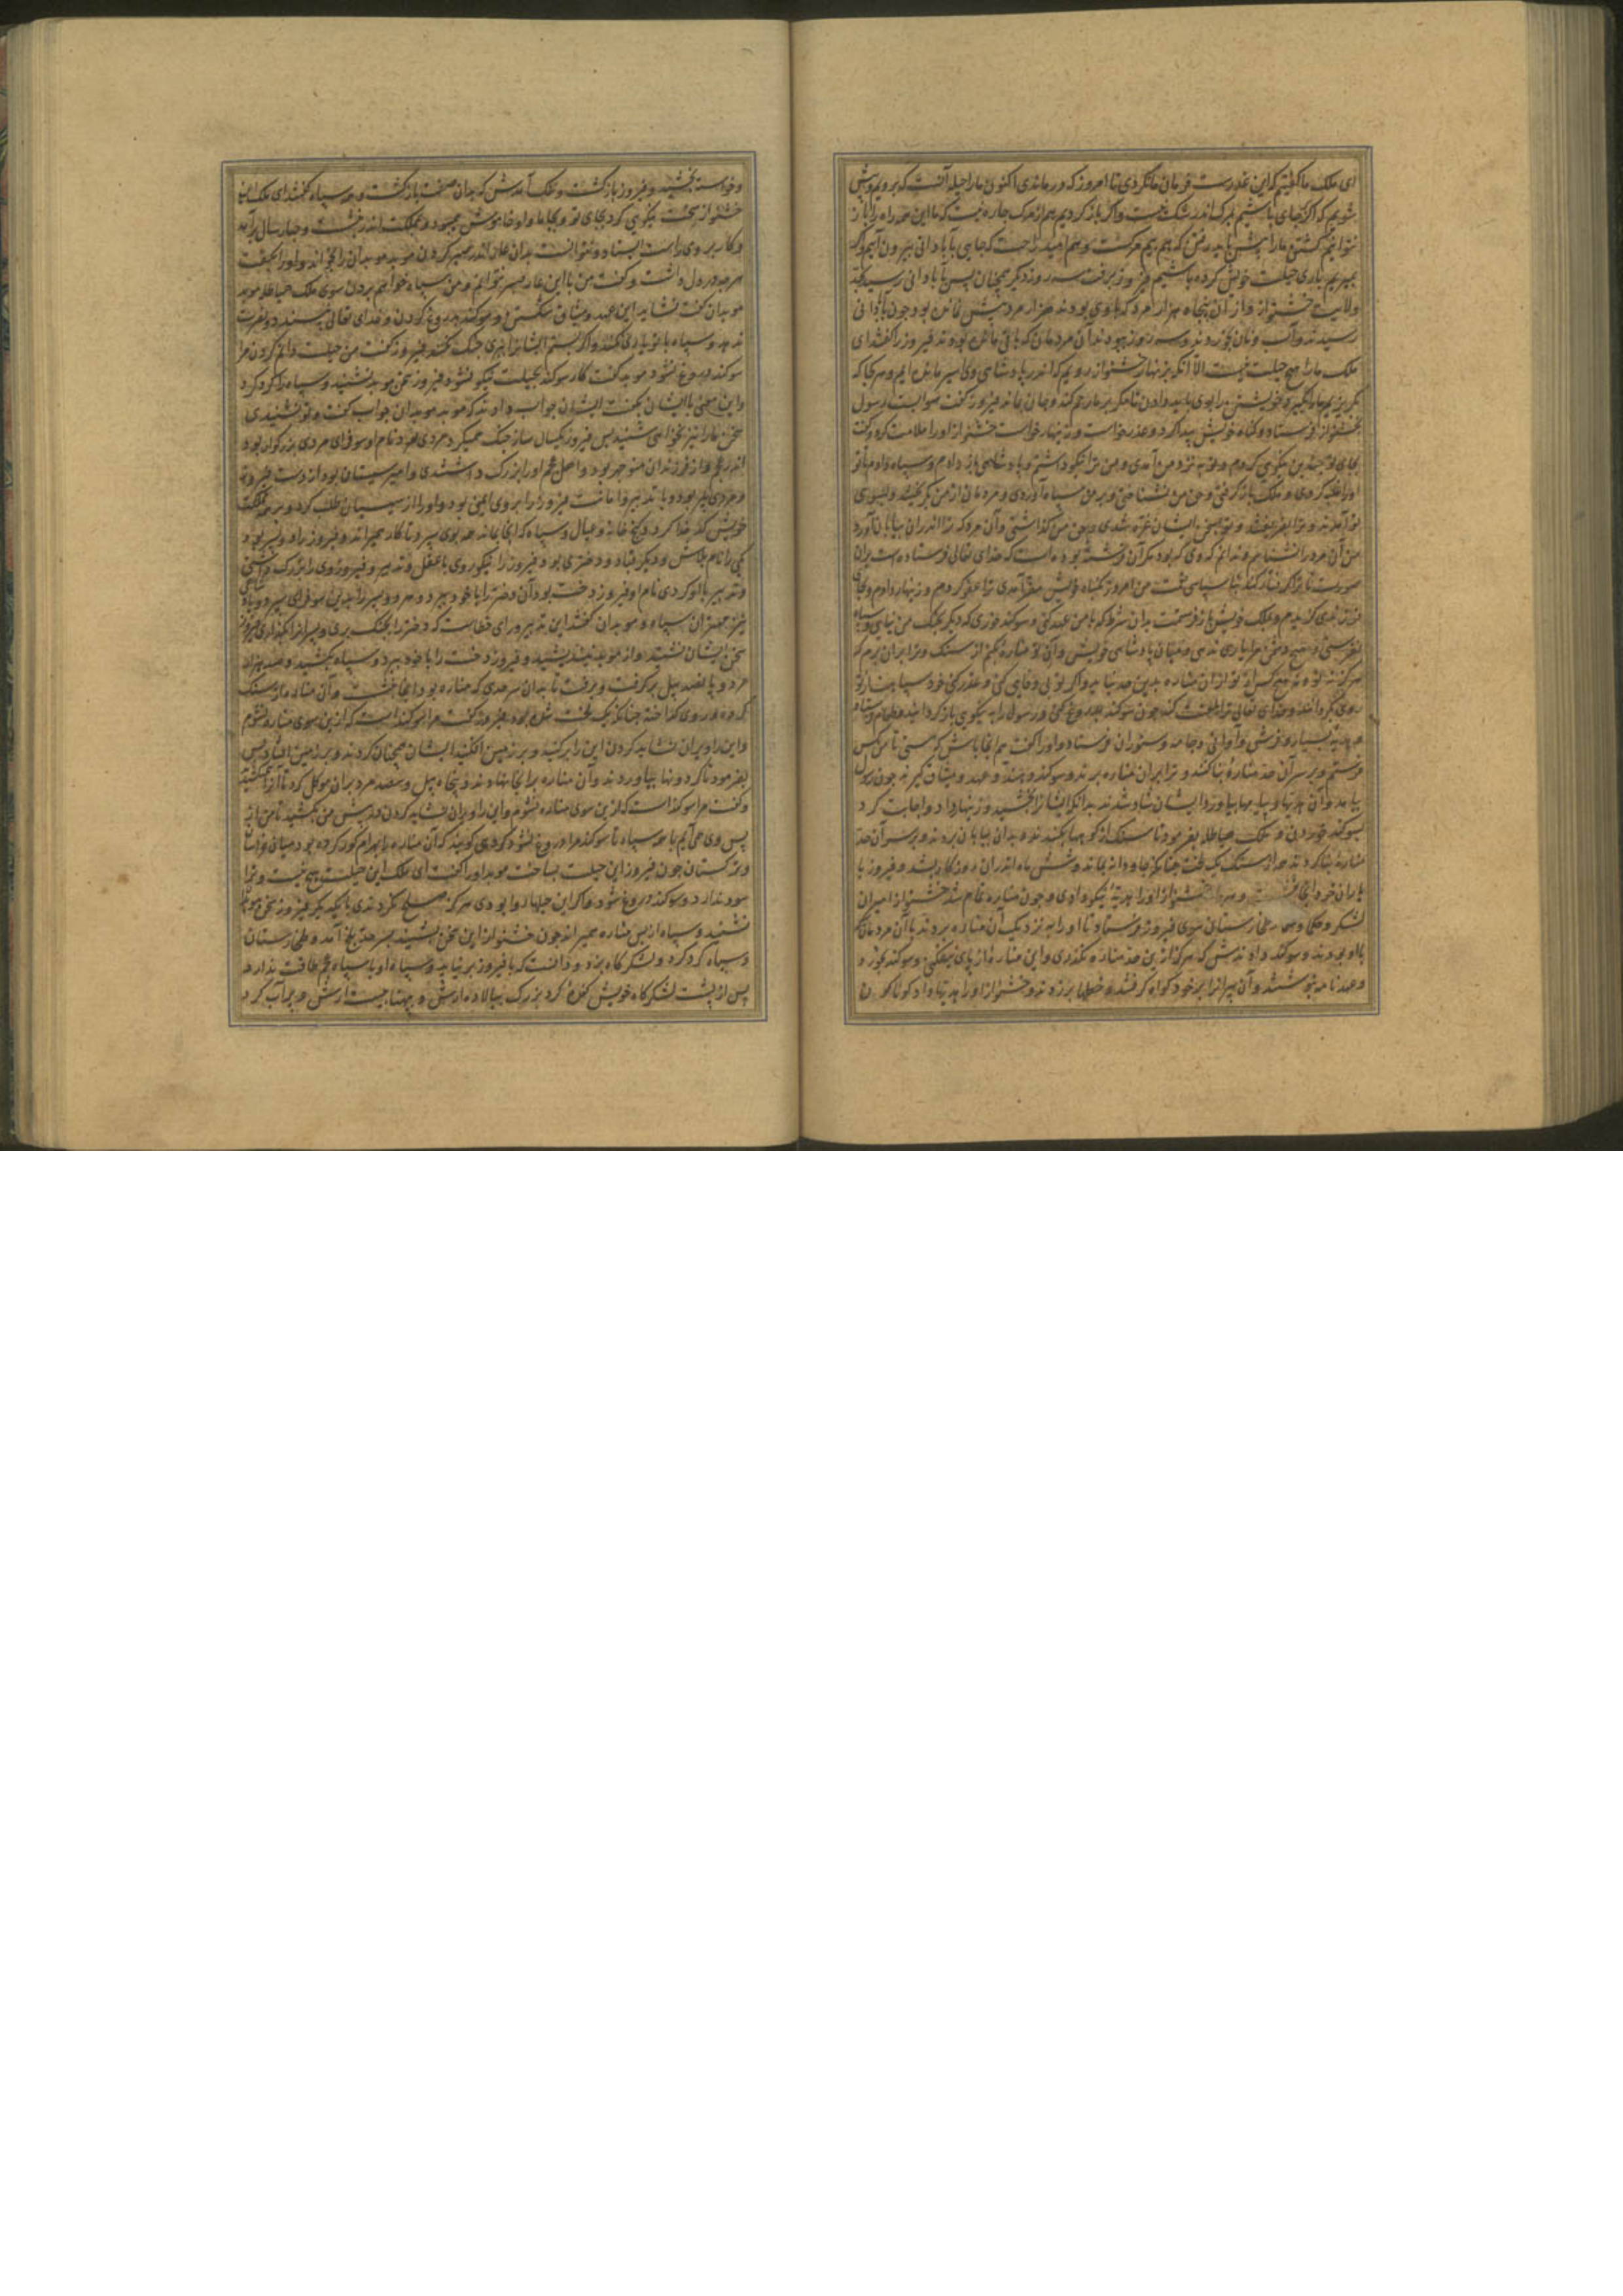 ای ملک ما گفتیم که این غدرست فرمان ما نکردی تا امروز که درماندی اکنون ما را حیله آنست که برویم و پیش
شویم که اگر بجای باشیم مرگ اندر شک نیست و اگر باز گردیم هم از مرگ چاره نیست که ما این همه راه را باز
نتوانیم گشتن ما را پیش باید رفتن که هم بیم مرگست و هم امید راحت که جایی بآبادانی بیرون آییم و گر
بمیریم باری حیلت خویش کرده باشیم فیروز برفت سه روز دیگر همچنان پس بآبادانی رسید بحد
ولایت خشنواز و از آن پنجاه هزار مرد که با وی بودند هزار مرد بیش نمانده بود چون بآبادانی
رسیدند و آب و نان بخوردند و سه روز ببودند آن مردمان که باقی مانده بودند فیروز را گفتند ای
ملک ما را هیچ حیلت نیست الا آنکه بزنهار خشنواز رویم که اندر پادشاهی وی اسیر مانده ایم و هر کجا که
بگریزیم ما را بگیرد خویشتن را بوی باید دادن تا مگر بر ما رحم کند و جان ماند فیروز گفت صوابست رسول
بخشنواز فرستاد و گناه خویش پیدا کرد و عذر خواست و زنهار خواست خشنواز او را ملامت کرد و گفت
بجای تو چندین نیکویی کردم و تو به نزد من آمدی و من ترا نیکو داشتم و پادشاهی باز دادم و سپاه دادم تا تو
او را غلبه کردی و ملک باز گرفتی و حق من نشناختی و بر من سپاه آوردی و مردمان از من بگریختند و بسوی
تو آمدند و ترا بفریفتند و تو بسخن ایشان غره شدی و حق من گذاشتی و آن مرد که ترا اندر آن بیابان آورد
من آن مرد را نشناسم و ندانم که وی که بود مگر آن فرشته بوده است که خدای تعالی فرستاده است بر آن
صورت تا ترا گرفتار کند بناسپاسی نعمت من امروز بگناه خویش مقر آمدی ترا عفو کردم و زنهار دادم و بجای
تو نزدی گزیدم و بملک خویش باز فرستمت بدان شرط که با من عهد کنی و سوگند خوری که دیگر بجنگ من نیایی و سپاه
نفرستی و هیچ دشمن مرا یاری ندهی و میان پادشاهی خویش و آن تو مناره بکنم از سنگ و ترا بر آن برم که
هرگز نه تو و نه هیچ کس از تو از آن مناره بدین حد نیاید و اگر تو بی وفایی کنی و غدر کنی خود سپاه تو از تو
روی گردانند و خدای تعالی ترا هلاک کند چون سوگند بدروغ کنی و رسول را به نیکویی باز گردانید و طعام فرستاد
و هدیه بسیار و فرش و اوانی و جامه و ستوران فرستاد و او را گفت هم آنجا باش که هستی تا من کس
فرستم و بر سر آن حد مناره بنا کنند و ترا بر آن مناره برند و سوگند دهند و عهد و میثاق گیرند چون رسول
بیامد و آن هدیها و پیامها بیاورد ایشان شاد شدند بدانکه ایشانرا بخشید و زنهار داد و اجابت کرد
بسوگند خوردن و ملک هیاطله بفرمود تا سنگ از کوهها بکندند و بدان بیابان بردند و بر سر آن حد
مناره بنا کردند همه از سنگ یک لخت چنانکه جاودانه بماند و شش ماه اندر آن روزگار بشد و فیروز با
یاران خود آنجا نشسته و هر روز خشنواز او را هدیه نیکو دادی و چون مناره تمام شد خشنواز امیران
لشکر و حکما و همه رعایا سوی فیروز فرستاد تا او را به نزدیک آن مناره بردند با آن مردمان که
با او بودند و سوگند دادندش که هرگز ازین حد مناره نگذری و این مناره از پای نیفکنی و سوگند بخورد
و عهدنامه بنوشتند و آن پیرانرا بر خود گواه گرفتند و خطها برزدند و خشنواز او را هدیها داد گوناگون
و خواسته بخشید و فیروز باز گشت و ننگ آمدش که بدان صفت باز گشت و همه سپاه گفتند ای ملک این
خشنواز سخت نیکویی کرد بجای تو و بجای ما و او خاموش همی بود و بمملکت اندر نشست و چهار سال برآمد
و کار بر وی راست ایستاد و نتوانست بدان عار اندر صبر کردن موبد موبدان را بخواند و او را بگفت
هر چه در دل داشت و گفت من با این عار بسر نتوانم و من سپاه خواهم بردن سوی ملک هیاطله موبد
موبدان گفت نشاید این عهد و میثاق شکستن و سوگند بدروغ کردن و خدای تعالی نپسندد و نصرت
ندهد و سپاه با تو یاری نکنند و اگر بستم ایشانرا ببری جنگ نکنند فیروز گفت من حیلت دانم کردن مرا
سوگند دروغ نشود موبد گفت کار سوگند بحیلت نیکو نشود فیروز سخن موبد نشنید و سپاه را گرد کرد
و این سخن با ایشان بگفت ایشان جواب دادند که موبد موبدان جواب گفت و تو نشنیدی
سخن ما را نیز نخواهی شنید پس فیروز یکسال ساز جنگ همیکرد مردی بود نام او سوفرای مردی بزرگوار بود
اندر عجم و از فرزندان منوچهر بود و اصل عجم او را بزرگ داشتندی و امیر سیستان بود از دست فیروز
و مردی پیر بود و با تدبیر و امانت فیروز را بر وی ایمنی بود و او را از سیستان طلب کرد و بر مملکت
خویش کدخدا کرد و گنج خانه و عیال و سپاه که آنجا ماند همه بوی سپرد تا کار همی راند و فیروز را دو پسر بود
یکی را نام بلاش و دیگر قباد و دختری بود فیروز را نیکوروی با عقل و تدبیر و فیروز وی را بزرگ داشتی
و تدبیر با او کردی نام او فیروزدخت بود آن دختر را با خود ببرد و هر دو پسر را بدین سوفرای سپرد
نیز مهتران سپاه و موبدان گفتند این تدبیر و رای خطاست که دختر را بجنگ بری و پسرانرا بگذاری فیروز
سخن ایشان نشنید و از موبد نیندیشید و فیروزدخت را با خود ببرد و سپاه بکشید و صد هزار
مرد و پانصد پیل برگرفت و برفت تا بدان سرحدی که مناره بود آنجا نشست و آن مناره از سنگ
کرده و روی گداخته چنانکه یک لخت شده بود فیروز گفت مرا سوگند است که ازین سوی مناره نشوم
و این را ویران نشاید کردن این را برکنید و بر زمین افکنید ایشان همچنان کردند و بر زمین افتاد پس
بفرمود تا گردونها بیاوردند و آن مناره بر آنجا نهادند و پنجاه پیل و سیصد مرد بر آن موکل کرد تا آنرا همی کشیدند
و گفت مرا سوگند است که ازین سوی مناره نشوم و این را ویران نشاید کردن و در پیش من بکشید تا من از
پس وی همی آیم با همه سپاه تا سوگند من دروغ نشود گروهی گویند که آن مناره را بهرام گور کرده بود میان خراسان
و ترکستان چون فیروز این حیلت بساخت موبد او را گفت ای ملک این حیلت هیچ نیست و ترا
سود ندارد و سوگند دروغ شود و اگر این حیلها روا بودی هرگز صلح نکردندی با یکدیگر فیروز سخن موبد
نشنید و سپاه از پس مناره همی راند چون خشنواز این سخن بشنید بسر حد بلخ آمد و طخارستان
و سپاه گرد کرد و لشکرگاه بزد و دانست که با فیروز برنیاید و سپاه او با سپاه عجم طاقت ندارد
پس از پشت لشکرگاه خویش کنده کرد بزرگ ببالا ده ارش و پهنا بیست ارش و پرآب کرد